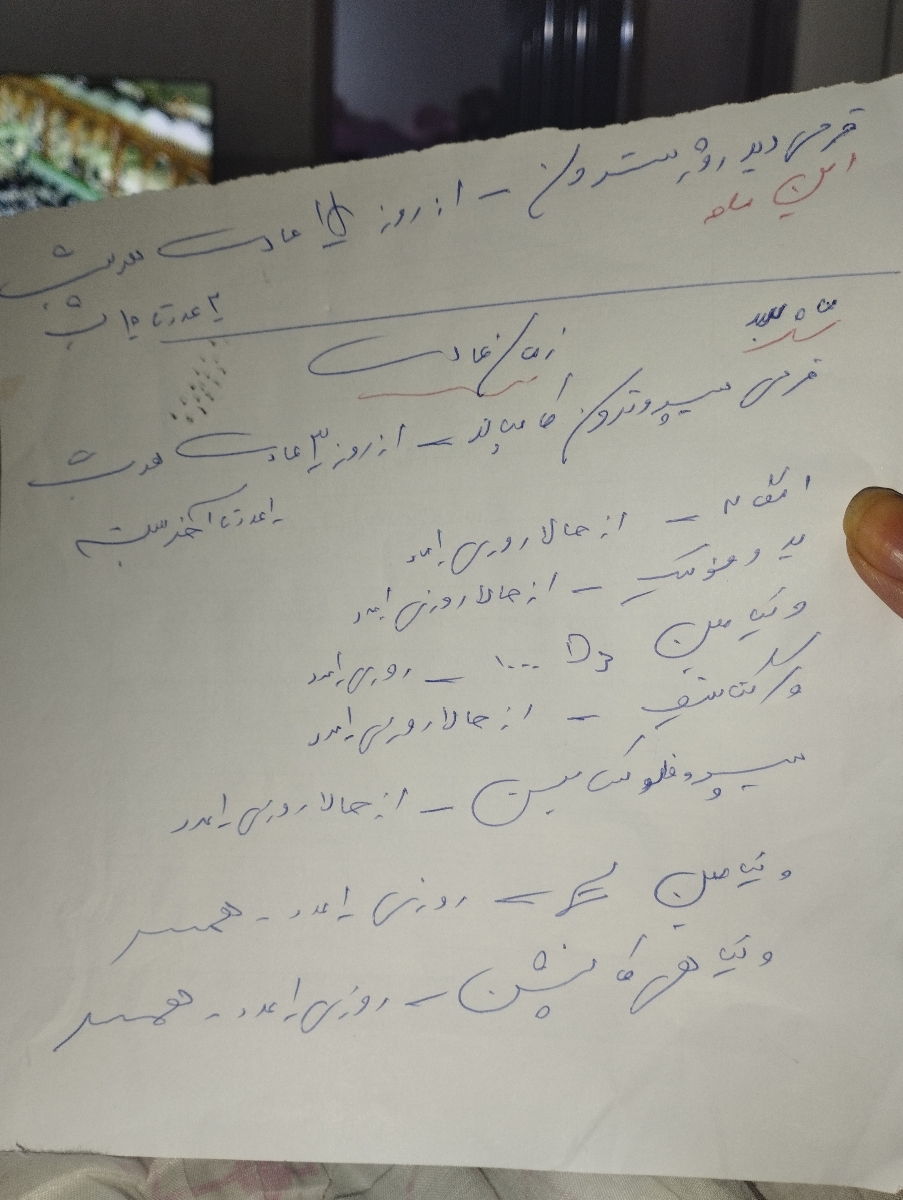 قرص دیدروژسترون - از روز ۱۵ عادت هر شب
این ماه
۲ عدد تا ۱۰ شب
ماه بعد
زمان عادت
قرص سیپروترون کامپاند - از روز ۳ عادت هر شب
۱ عدد تا آخر بسته
امگا ۳ - از حالا روزی ۱ عدد
از حالا روزی ۱ عدد
ویتامین D3 ۱۰۰۰ - روزی ۱ عدد
از حالا روزی ۱ عدد
از حالا روزی ۱ عدد
ویتامین - روزی ۱ عدد - همسر
روزی ۱ عدد - همسر